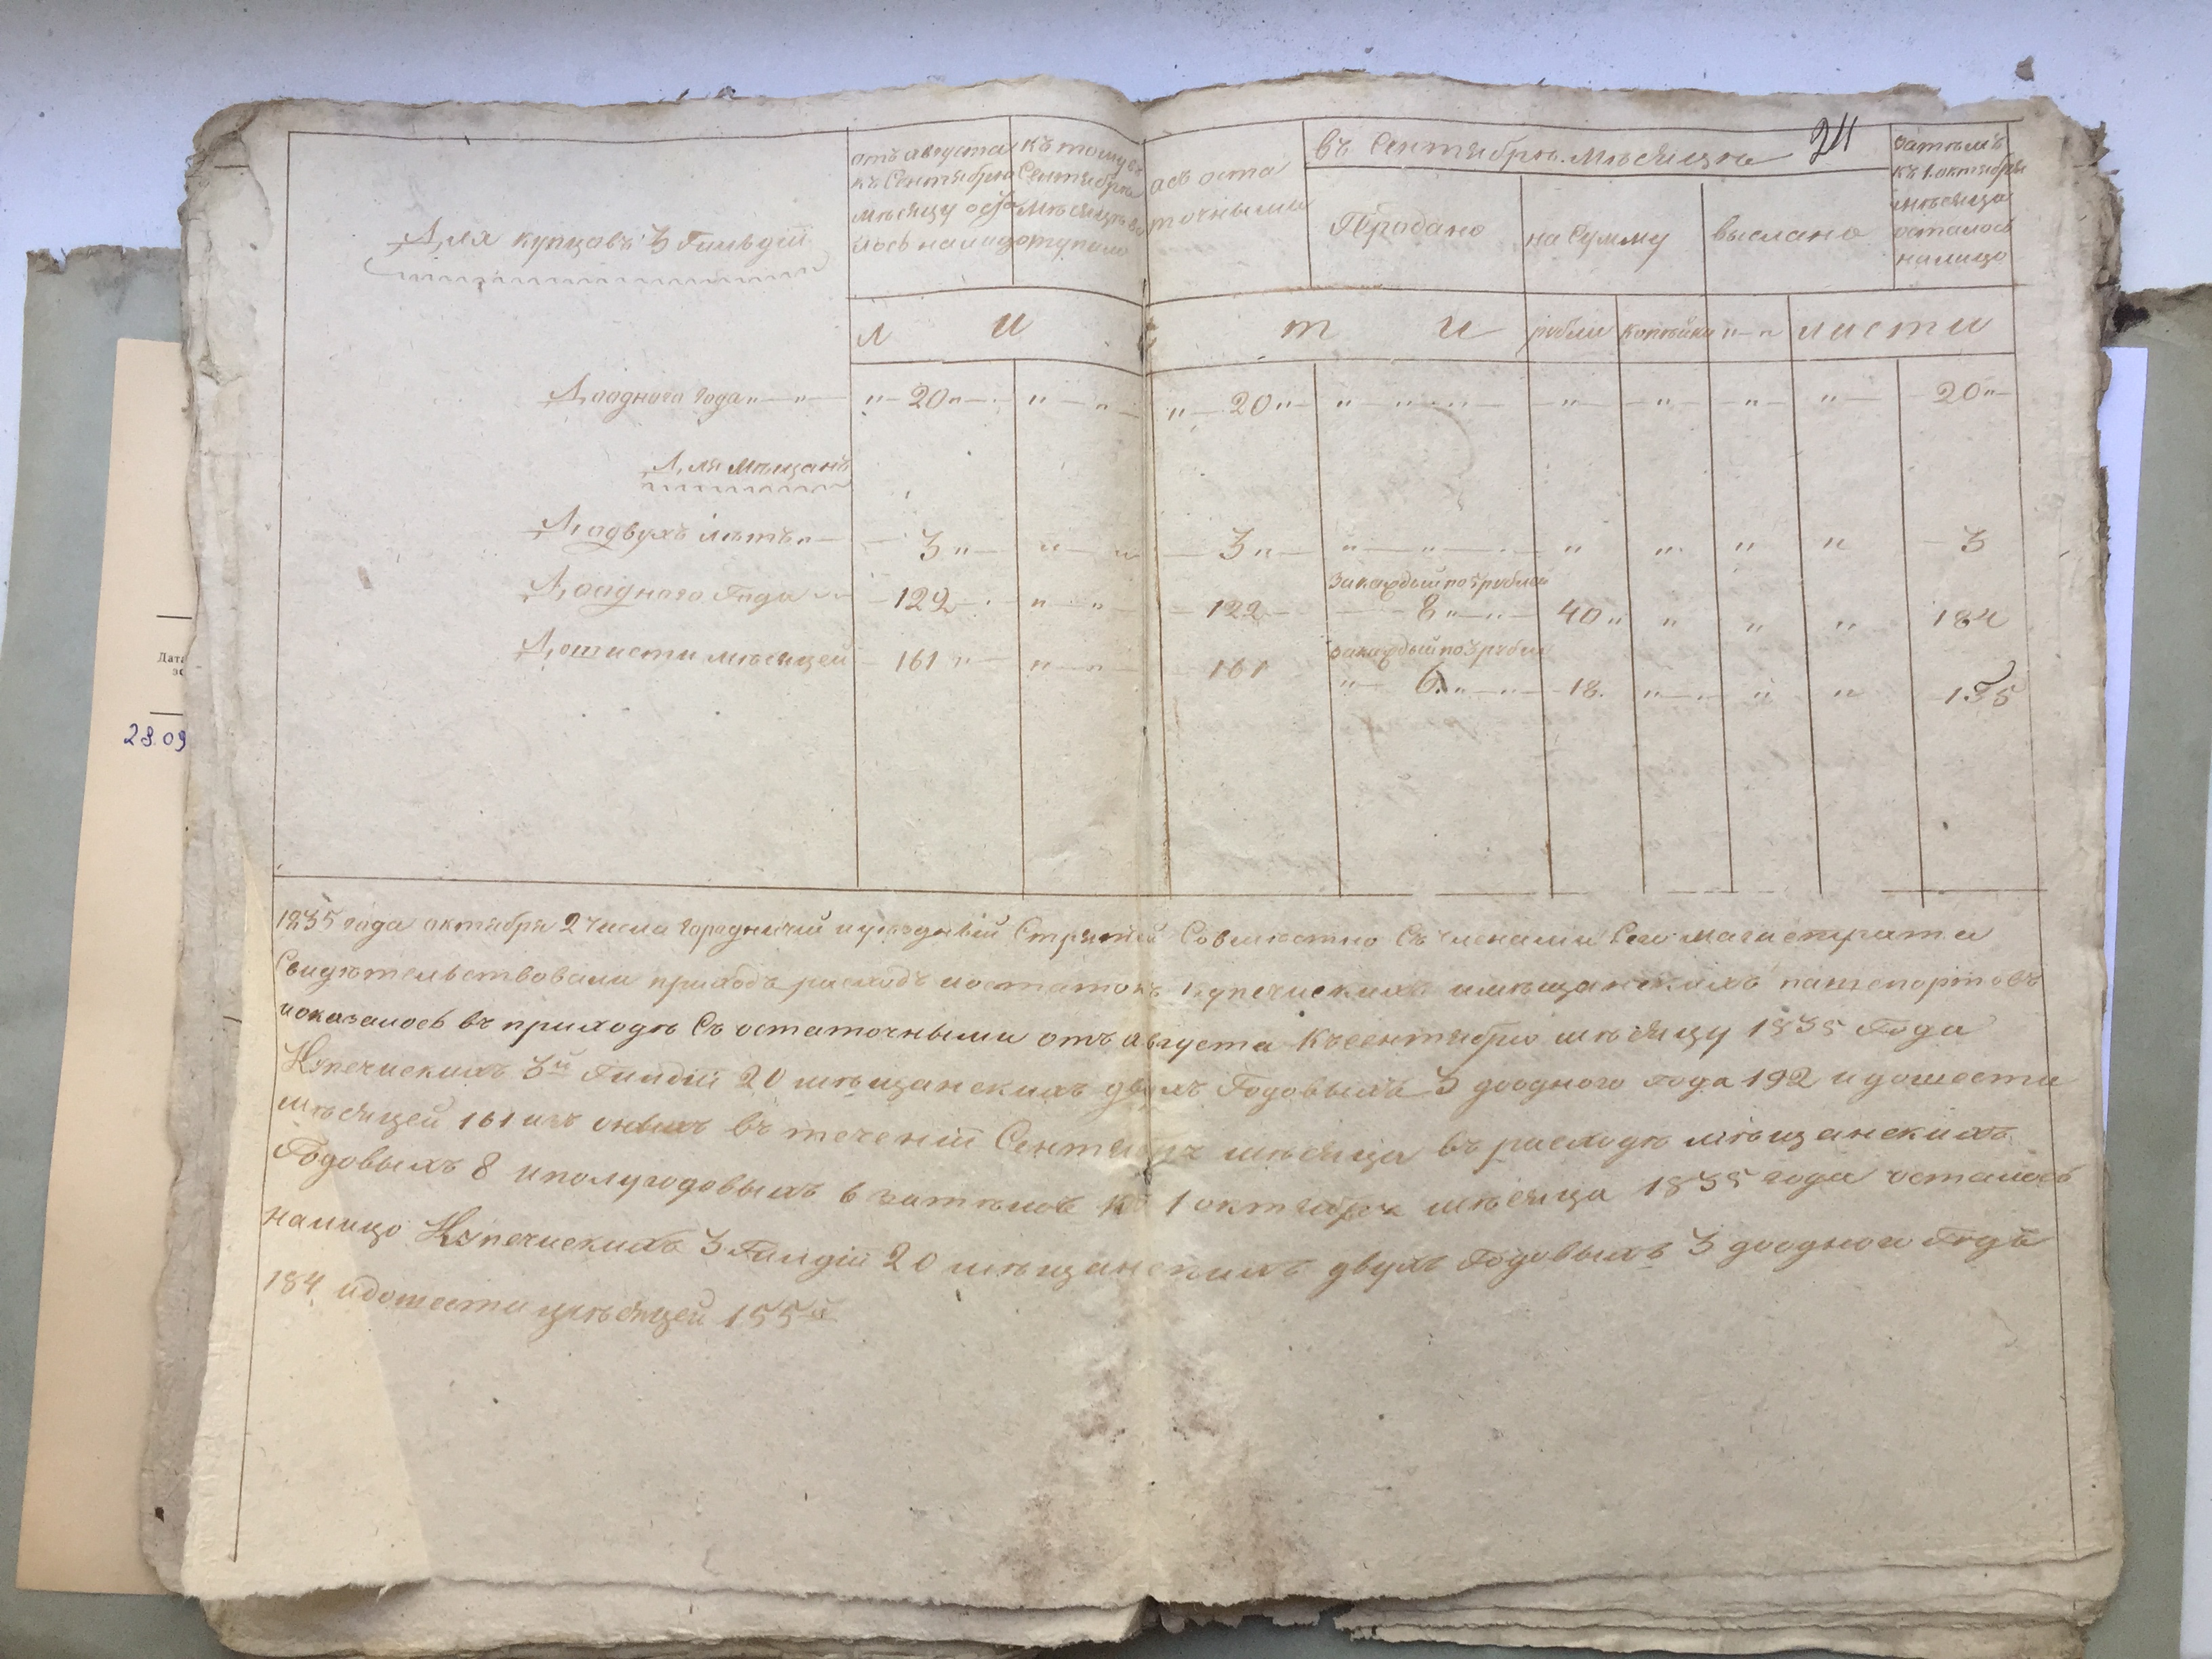 24
Для купцовъ 3 Гильдіи
отъ августа
къ Сентябрю
мѣсяцу оста
лось налицо
къ тому въ
Сентябрѣ
мѣсяцѣ
поступило
а съ оста
точными
въ Сентябрѣ мѣсяцѣ
Продано
на Сумму
выслано
затѣмъ
къ 1. октября
мѣсяца
осталось
налицо
л и с т и рубли копѣйки "—" листи
До одного года "—"— "—20"— "—"— "—20"— " " — " — " — " — " — 20"—
Для мѣщанъ
До двухъ лѣтъ "— 3"— "—" — 3"— "—"— " " " " 3
за каждый по 5 рублей
До одного Года — 192 — "—" — 192 — 8"—"— 40" " " " 184
за каждый по 3 рубли
До шести мѣсяцей — 161"— "—" 161 "— 6."—"— 18. "—" " " 155
1835 года октября 2 числа городничій и уѣздный Стряпчій Совмѣстно Съ членами Сего магистрата
Свидѣтельствовали приходъ расходъ и остатокъ купеческихъ и мѣщанскихъ пашпортовъ
и оказалось въ приходѣ Съ остаточными отъ августа къ сентябрю мѣсяцу 1835 Года
Купеческихъ 3й Гилдіи 20 мѣщанскихъ двухъ Годовыхъ 3 до одного года 192 и до шести
мѣсяцей 161 изъ оныхъ въ теченіи Сентября мѣсяца въ расходѣ мѣщанскихъ
Годовыхъ 8 и полугодовыхъ 6 затѣмъ къ 1 октября мѣсяца 1835 года осталось
налицо Купеческихъ 3 Гилдіи 20 мѣщанскихъ двухъ Годовыхъ 3 до одного Года
184 и до шести мѣсяцей 155й
Дата
28.09